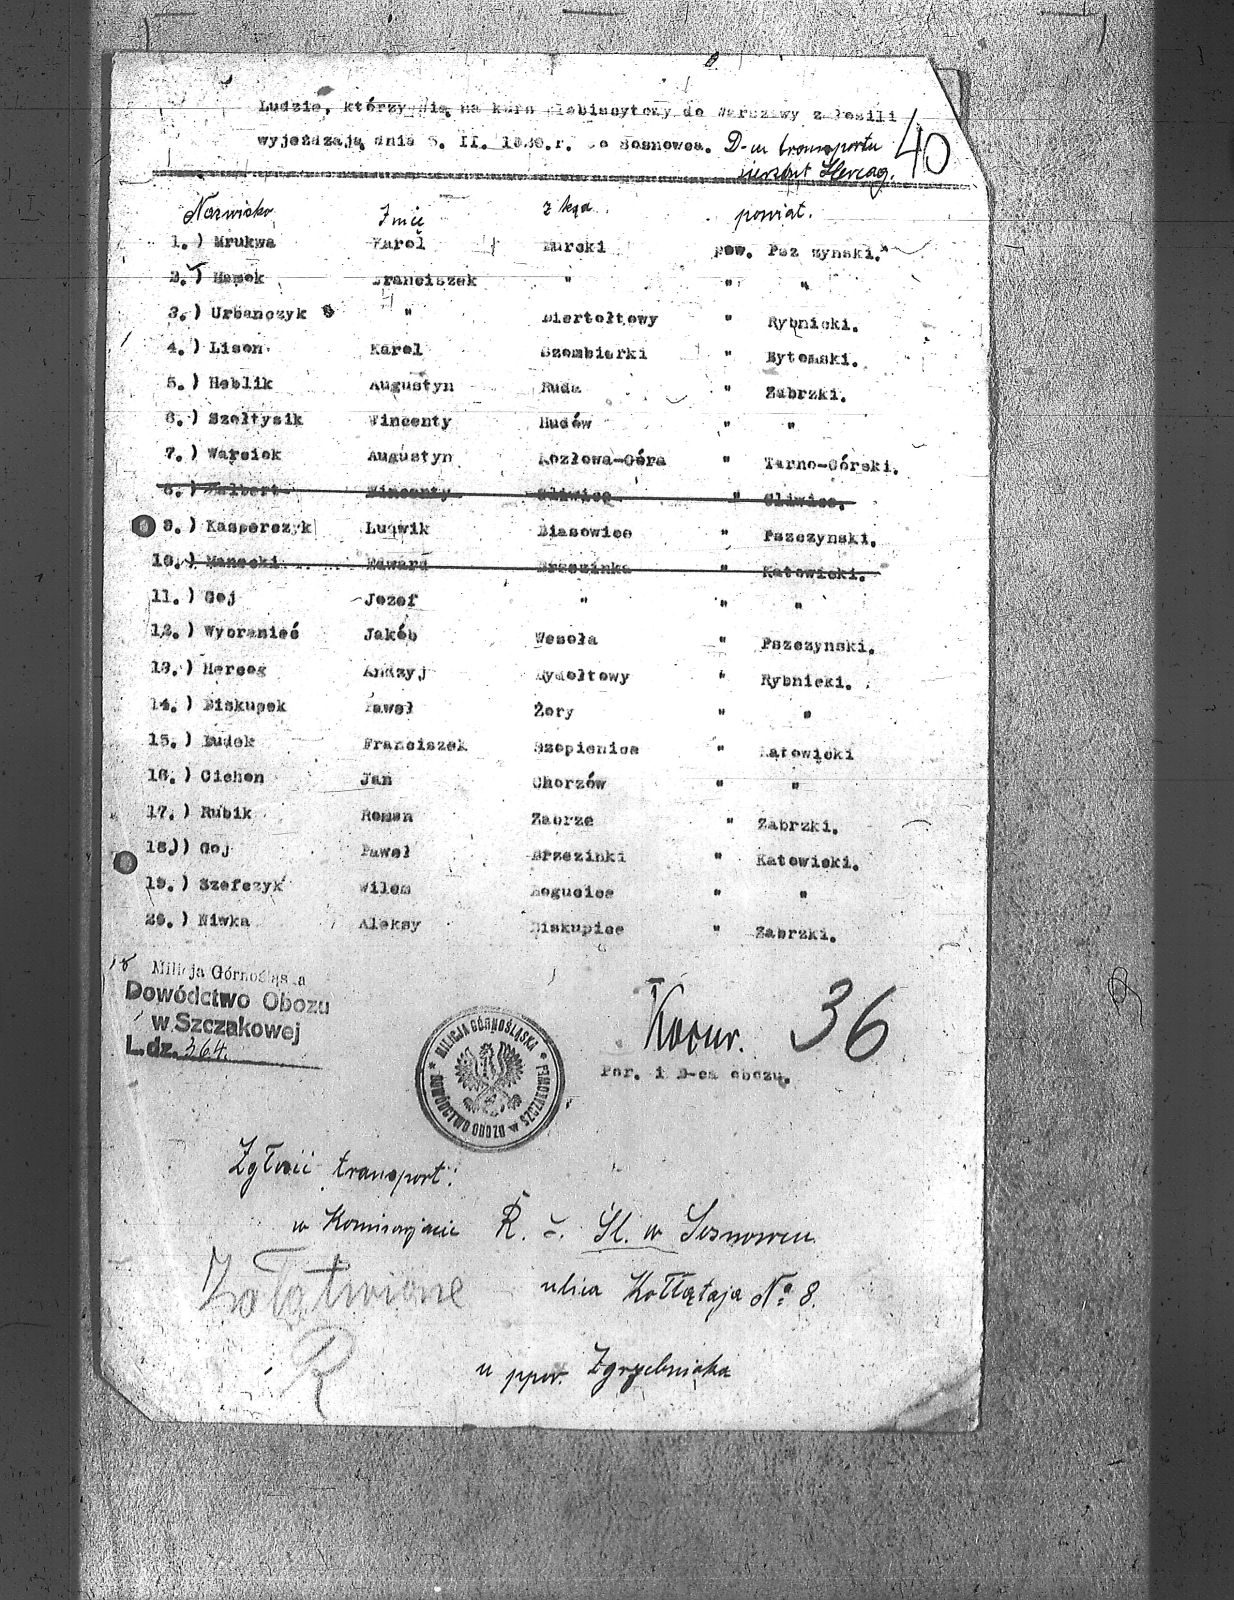 Ludzie, którzy się na kurs plebiscytowy do Warszawy zgłosili
wyjeżdzają dnia 5. II. 1920.r. do Sosnowca. D-ca transportu
sierżant Herzog.
40
Nazwisko Imię z kąd powiat.
1.) Mrukwa Karol Murcki pow. Pszczynski.
2.) Mamok Franciszek " " "
3.) Urbańczyk " Biertołtowy " Rybnicki.
4.) Lison Karol Szombierki " Bytomski.
5.) Hoblik Augustyn Ruda " Zabrzki.
6.) Szołtysik Wincenty Rudów " "
7.) Warciok Augustyn Kozłowa-Góra " Tarno-Górski.
8.) Zalbert Wincenty Gliwice " Gliwice.
9.) Kasperczyk Ludwik Biasowice " Pszczynski.
10.) Manecki Edward Brzezinka " Katowicki.
11.) Goj Jozef " " "
12.) Wybranieć Jakób Wesoła " Pszczynski.
13.) Herceg Andzyj Rydołtowy " Rybnicki.
14.) Biskupek Paweł Żory " "
15.) Dudek Franciszek Szopienice " Katowicki
16.) Cichon Jan Chorzów " "
17.) Rubik Roman Zabrze " Zabrzki.
18.) Goj Paweł Brzezinki " Katowicki.
19.) Szefczyk Wilem Bogucice " "
20.) Niwka Aleksy Biskupice " Zabrzki.
18 Milicja Górnośląska
Dowództwo Obozu
w Szczakowej
L. dz. 364.
MILICJA GÓRNOŚLĄSKA * DOWÓDCTWO OBOZU w SZCZAKOWEJ *
Kocur. 36
Por. i D-ca obozu.
Zgłosić transport:
w Komisarjacie R. č. Śl. w Sosnowcu
ulica Kołłątaja No 8.
Załatwione
R
u ppor. Zgrzebnioka